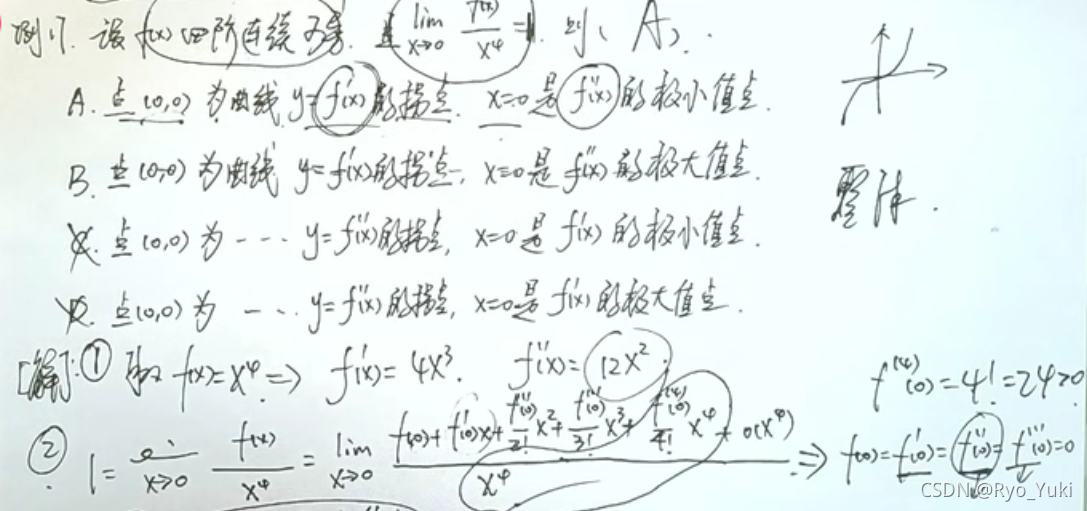 例17. 设f(x)四阶连续可导. 且 lim x→0 f(x)/x⁴ = 1. 则( A ).
A. 点(0,0)为曲线 y=f'(x)的拐点. x=0是f''(x)的极小值点.
B. 点(0,0)为曲线 y=f'(x)的拐点, x=0是f''(x)的极大值点.
C. 点(0,0)为--- y=f''(x)的拐点, x=0是f'(x)的极小值点.
D. 点(0,0)为--- y=f''(x)的拐点, x=0是f'(x)的极大值点.
整体.
[解]: ① 取 f(x)=x⁴ => f'(x)=4x³. f''(x)=12x².
f⁽⁴⁾(0)=4!=24>0
② 1 = x→0 f(x)/x⁴ = lim x→0 (f(0)+f'(0)x+f''(0)/2! x²+f'''(0)/3! x³+f⁽⁴⁾(0)/4! x⁴+o(x⁴))/x⁴ => f(0)=f'(0)=f''(0)=f'''(0)=0
CSDN @Ryo_Yuki